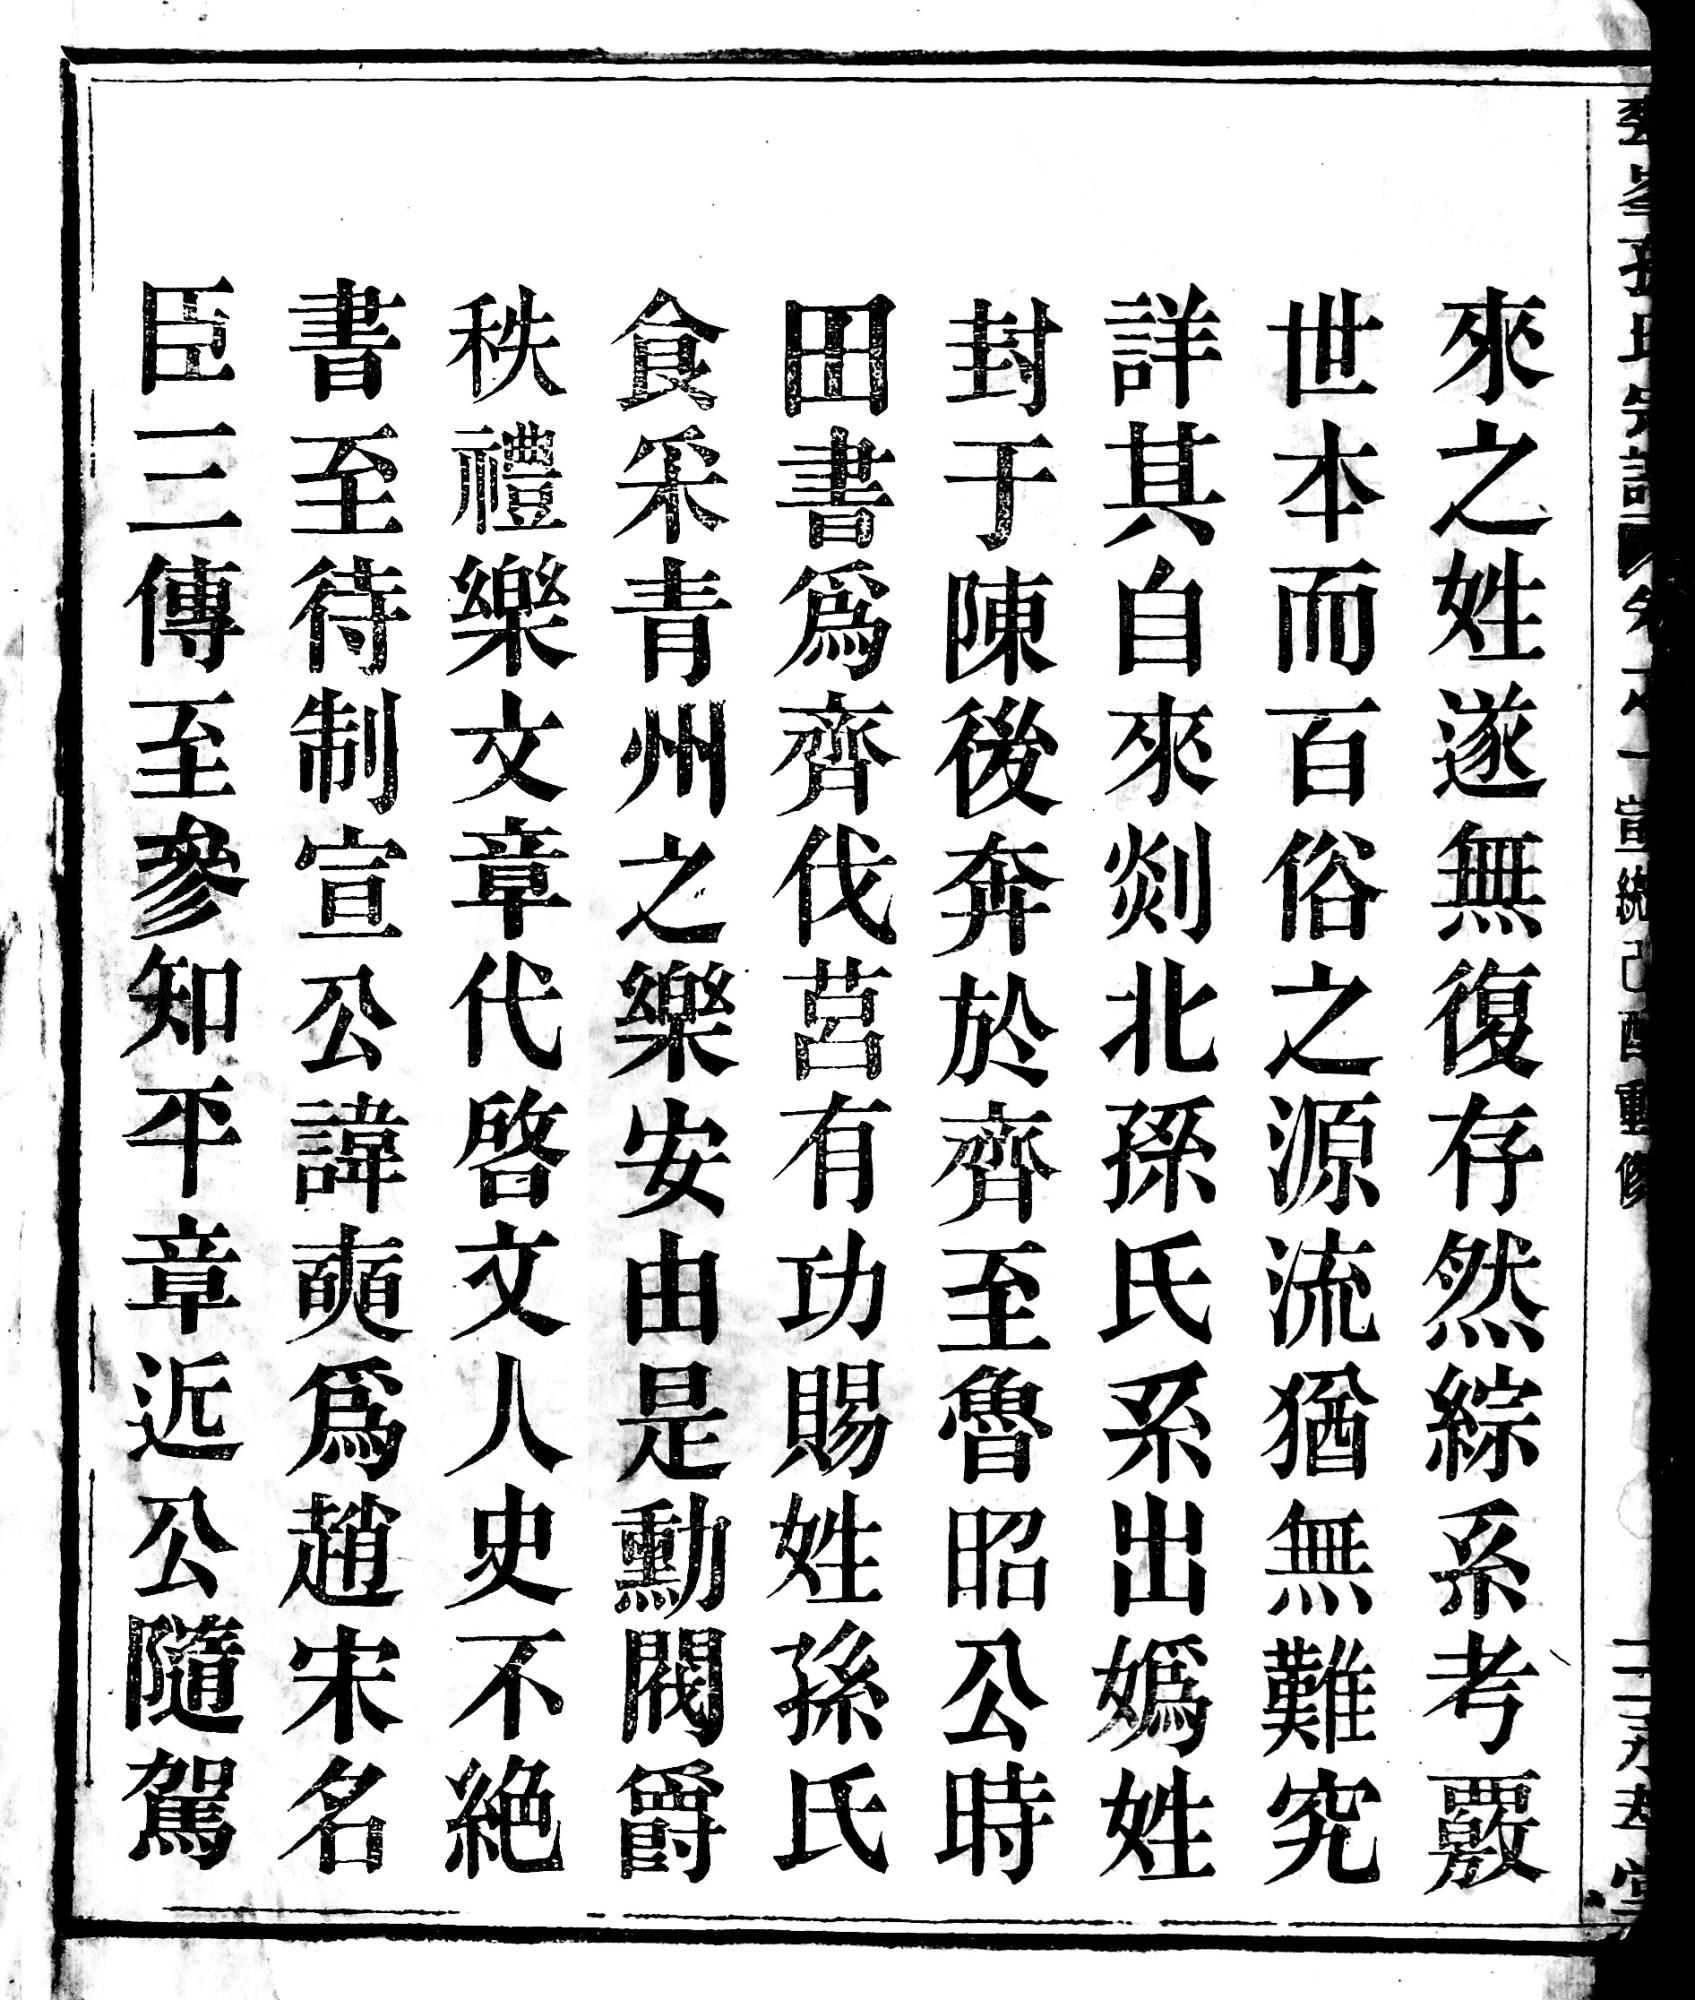 來之姓遂無復存然綜系考覈
世本而百俗之源流猶無難究
詳其自來剡北孫氏系出嬀姓
封于陳後奔於齊至魯昭公時
田書爲齊伐莒有功賜姓孫氏
食采青州之樂安由是勳閥爵
秩禮樂文章代啓文人史不絶
書至待制宣公諱奭爲趙宋名
臣三傳至參知平章近公隨駕
孫氏宗譜 卷之一 宣統己酉重修